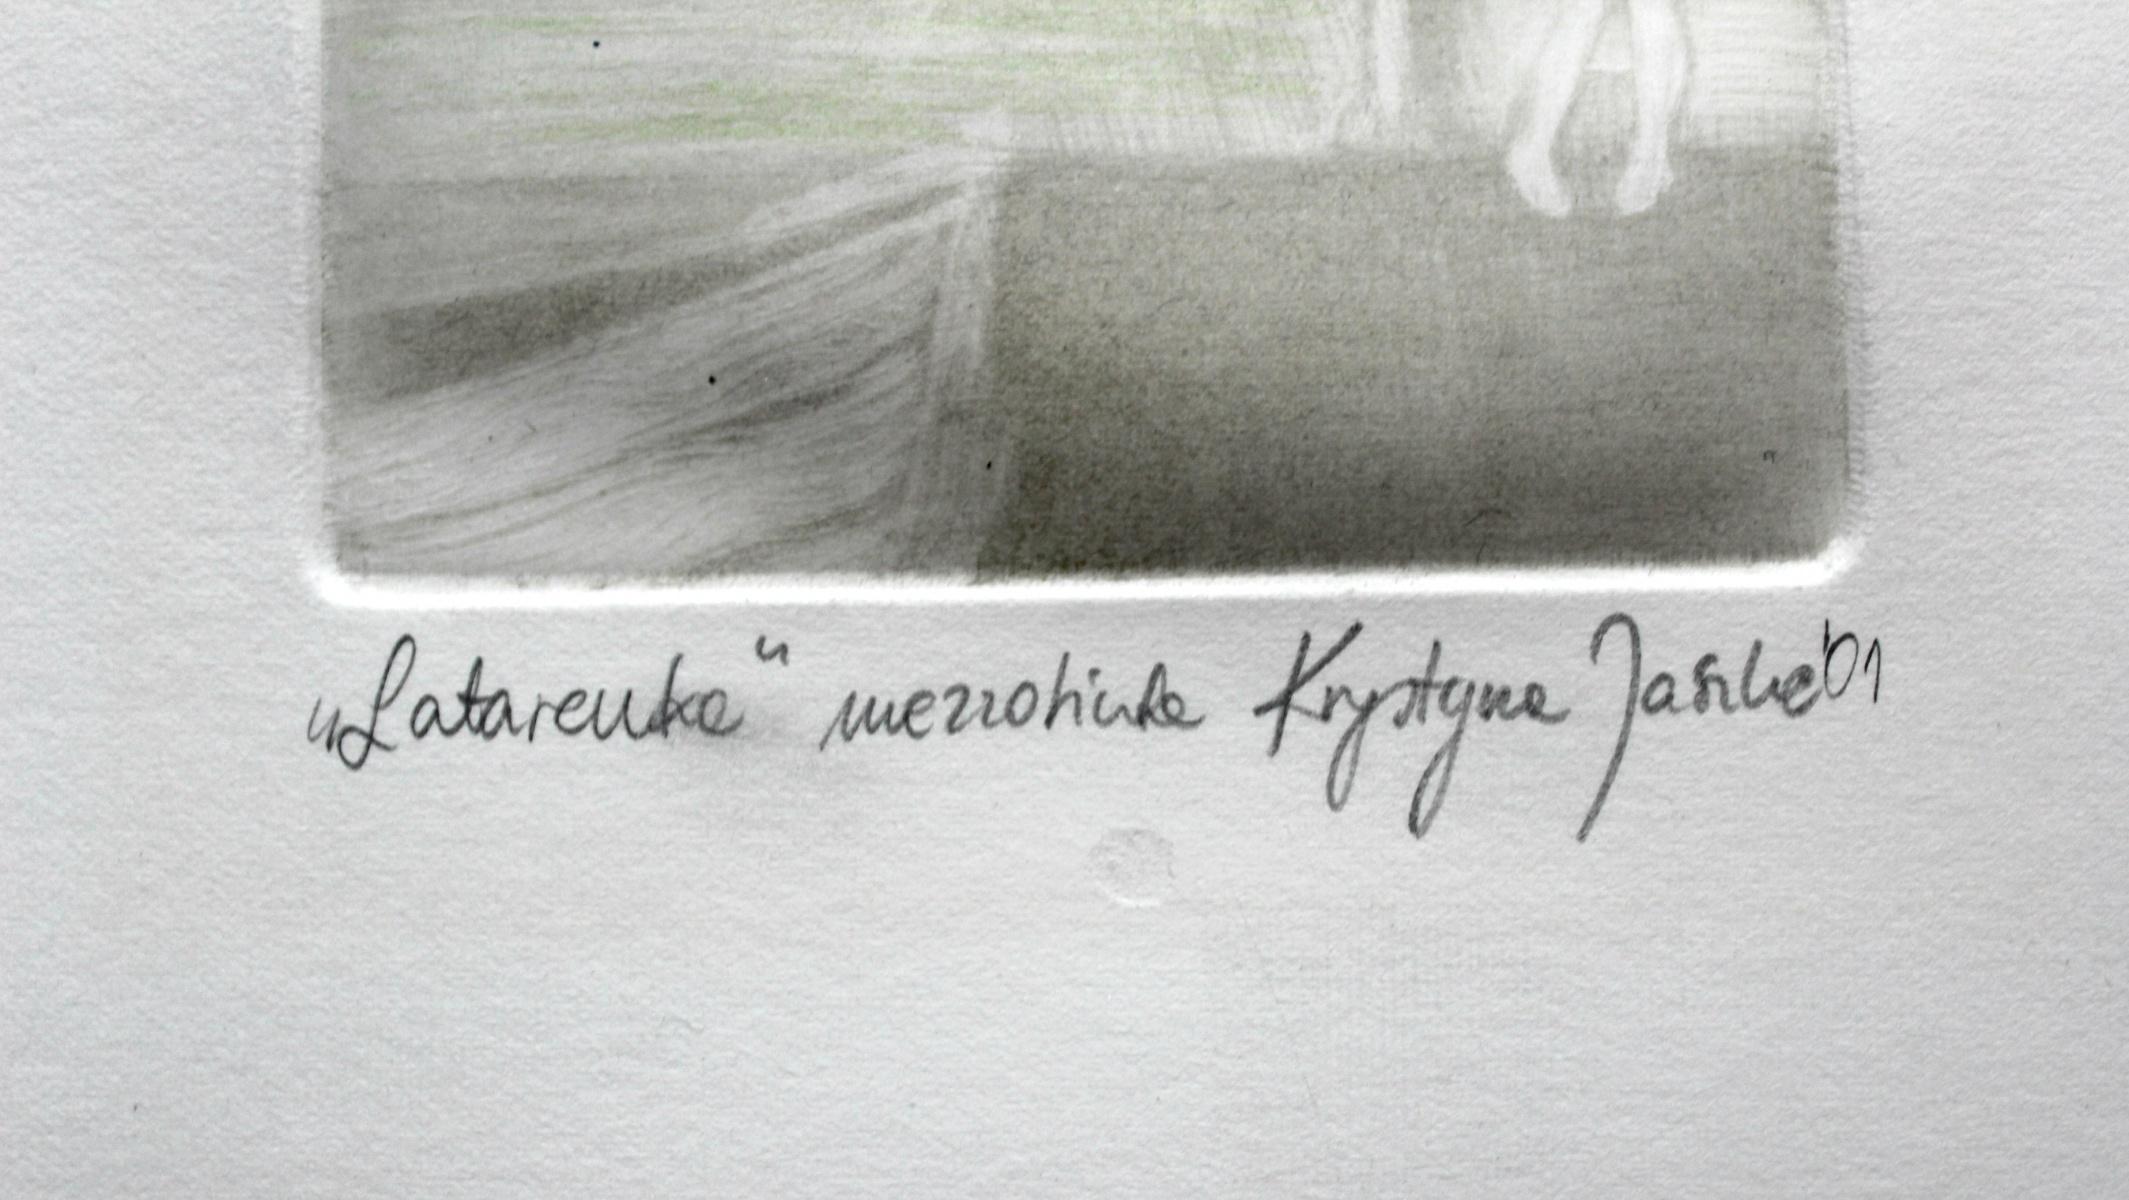 „Latarenka” mezzotinta Krystyna Jaszke '01